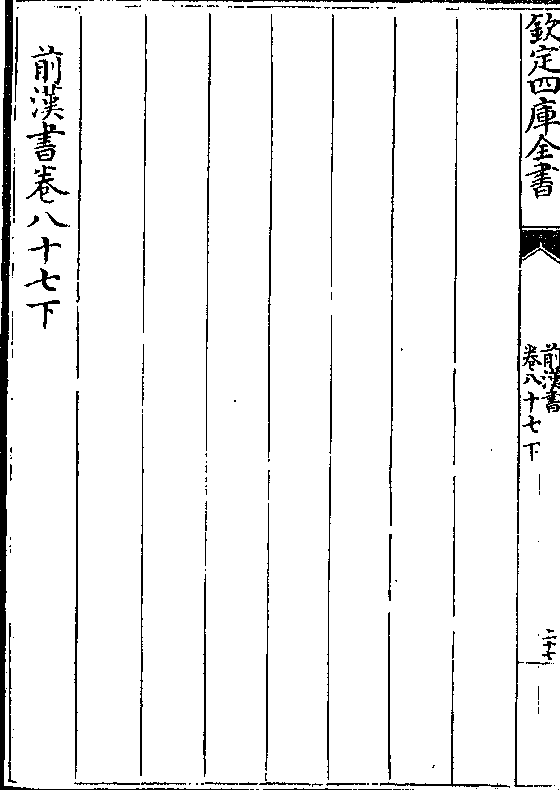 欽定四庫全書
前漢書
卷八十七下
二十七
前漢書卷八十七下